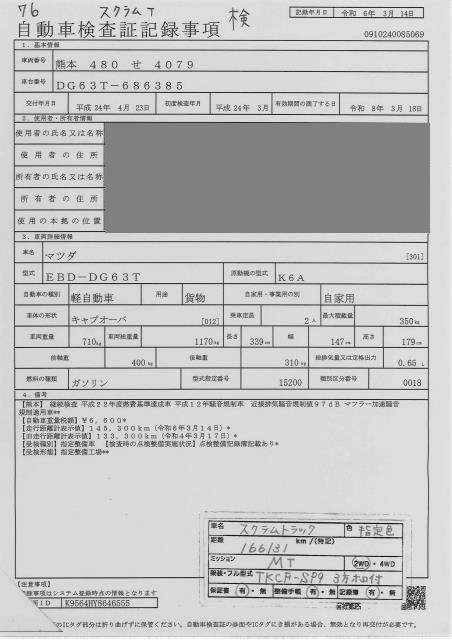 76 スクラムT 検
記録年月日 令和 6年 3月 14日
自動車検査証記録事項
0910240085069
1. 基本情報
車両番号 熊本 480 せ 4079
車台番号 DG63T-686385
交付年月日 平成 24年 4月 23日 初度検査年月 平成 24年 3月 有効期間の満了する日 令和 8年 3月 18日
2. 使用者・所有者情報
使用者の氏名又は名称
使用者の住所
所有者の氏名又は名称
所有者の住所
使用の本拠の位置
3. 車両詳細情報
車名 マツダ [301]
型式 EBD-DG63T 原動機の型式 K6A
自動車の種別 軽自動車 用途 貨物 自家用・事業用の別 自家用
車体の形状 キャブオーバ [012] 乗車定員 2人 最大積載量 350kg
車両重量 710kg 車両総重量 1170kg 長さ 339cm 幅 147cm 高さ 179cm
前軸重 400kg 後軸重 310kg 総排気量又は定格出力 0.65 L
燃料の種類 ガソリン 型式指定番号 15200 類別区分番号 0018
4. 備考
【熊本】 継続検査 平成22年度燃費基準達成車 平成12年騒音規制車 近接排気騒音規制値97dB マフラー加速騒音
規制適用車**
【自動車重量税額】¥6,600*
【走行距離計表示値】145,300km(令和6年3月14日)*
【旧走行距離計表示値】133,300km(令和4年3月17日)*
【受検種別】指定整備車 【検査時の点検整備実施状況】点検整備記録簿記載あり*
【受検形態】指定整備工場**
車名 スクラムトラック 色 指定色
距離 166131 km/(特記)
ミッション MT 2WD・4WD
架装・フル型式 TKCA-SP9 3方ホロ付
保証書 有・無 整備手帳 有・無 記録簿 有・無
【注意事項】
記録事項はシステム登録時点の情報となります
ID K9564HY8646555
のICタグ部分は折り曲げずに保管ください。自動車検査証の券面やICタグに著しい損傷がある場合、無効となり再交付が必要です。